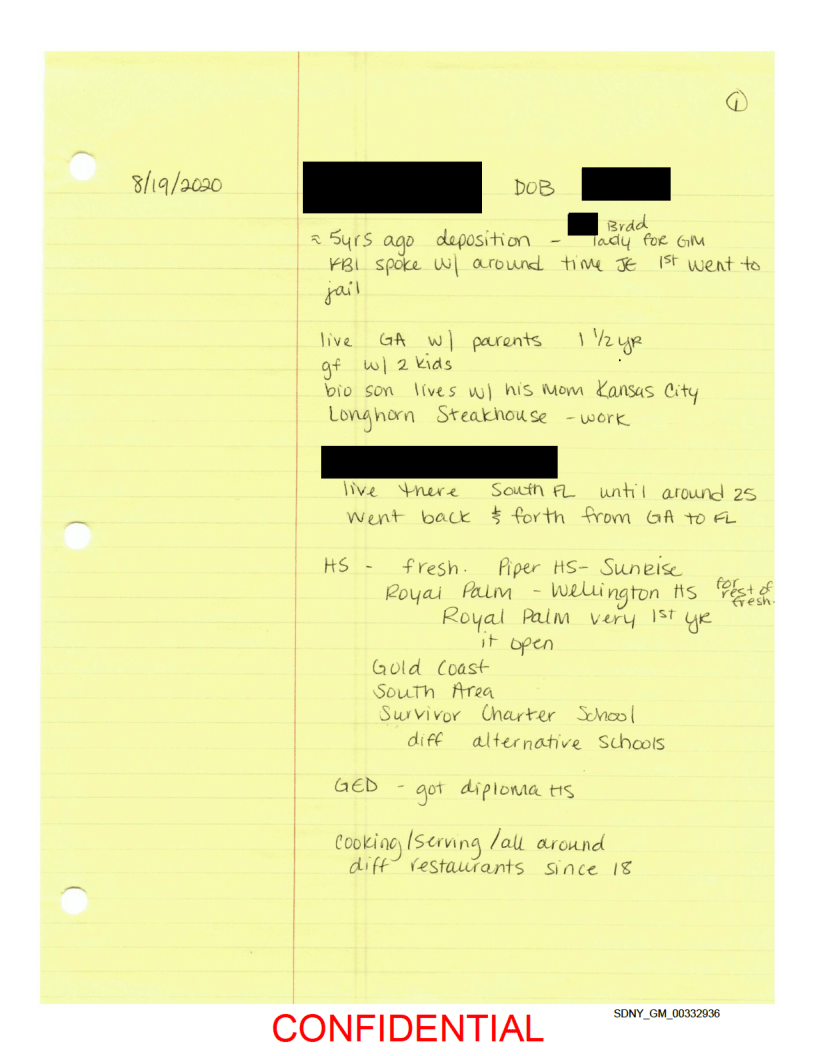 ①
8/19/2020
DOB
≈ 5yrs ago deposition - Brad
lady for GM
FBI spoke w/ around time JE 1st went to
jail
live GA w/ parents 1 1/2 yr
gf w/ 2 kids
bio son lives w/ his mom Kansas City
Longhorn Steakhouse - work
live there South FL until around 25
went back & forth from GA to FL
HS - fresh. Piper HS - Sunrise
Royal Palm - Wellington HS for rest of fresh.
Royal Palm very 1st yr
it open
Gold Coast
South Area
Survivor Charter School
diff alternative schools
GED - got diploma HS
cooking/serving/all around
diff restaurants since 18
CONFIDENTIAL
SDNY_GM_00332936